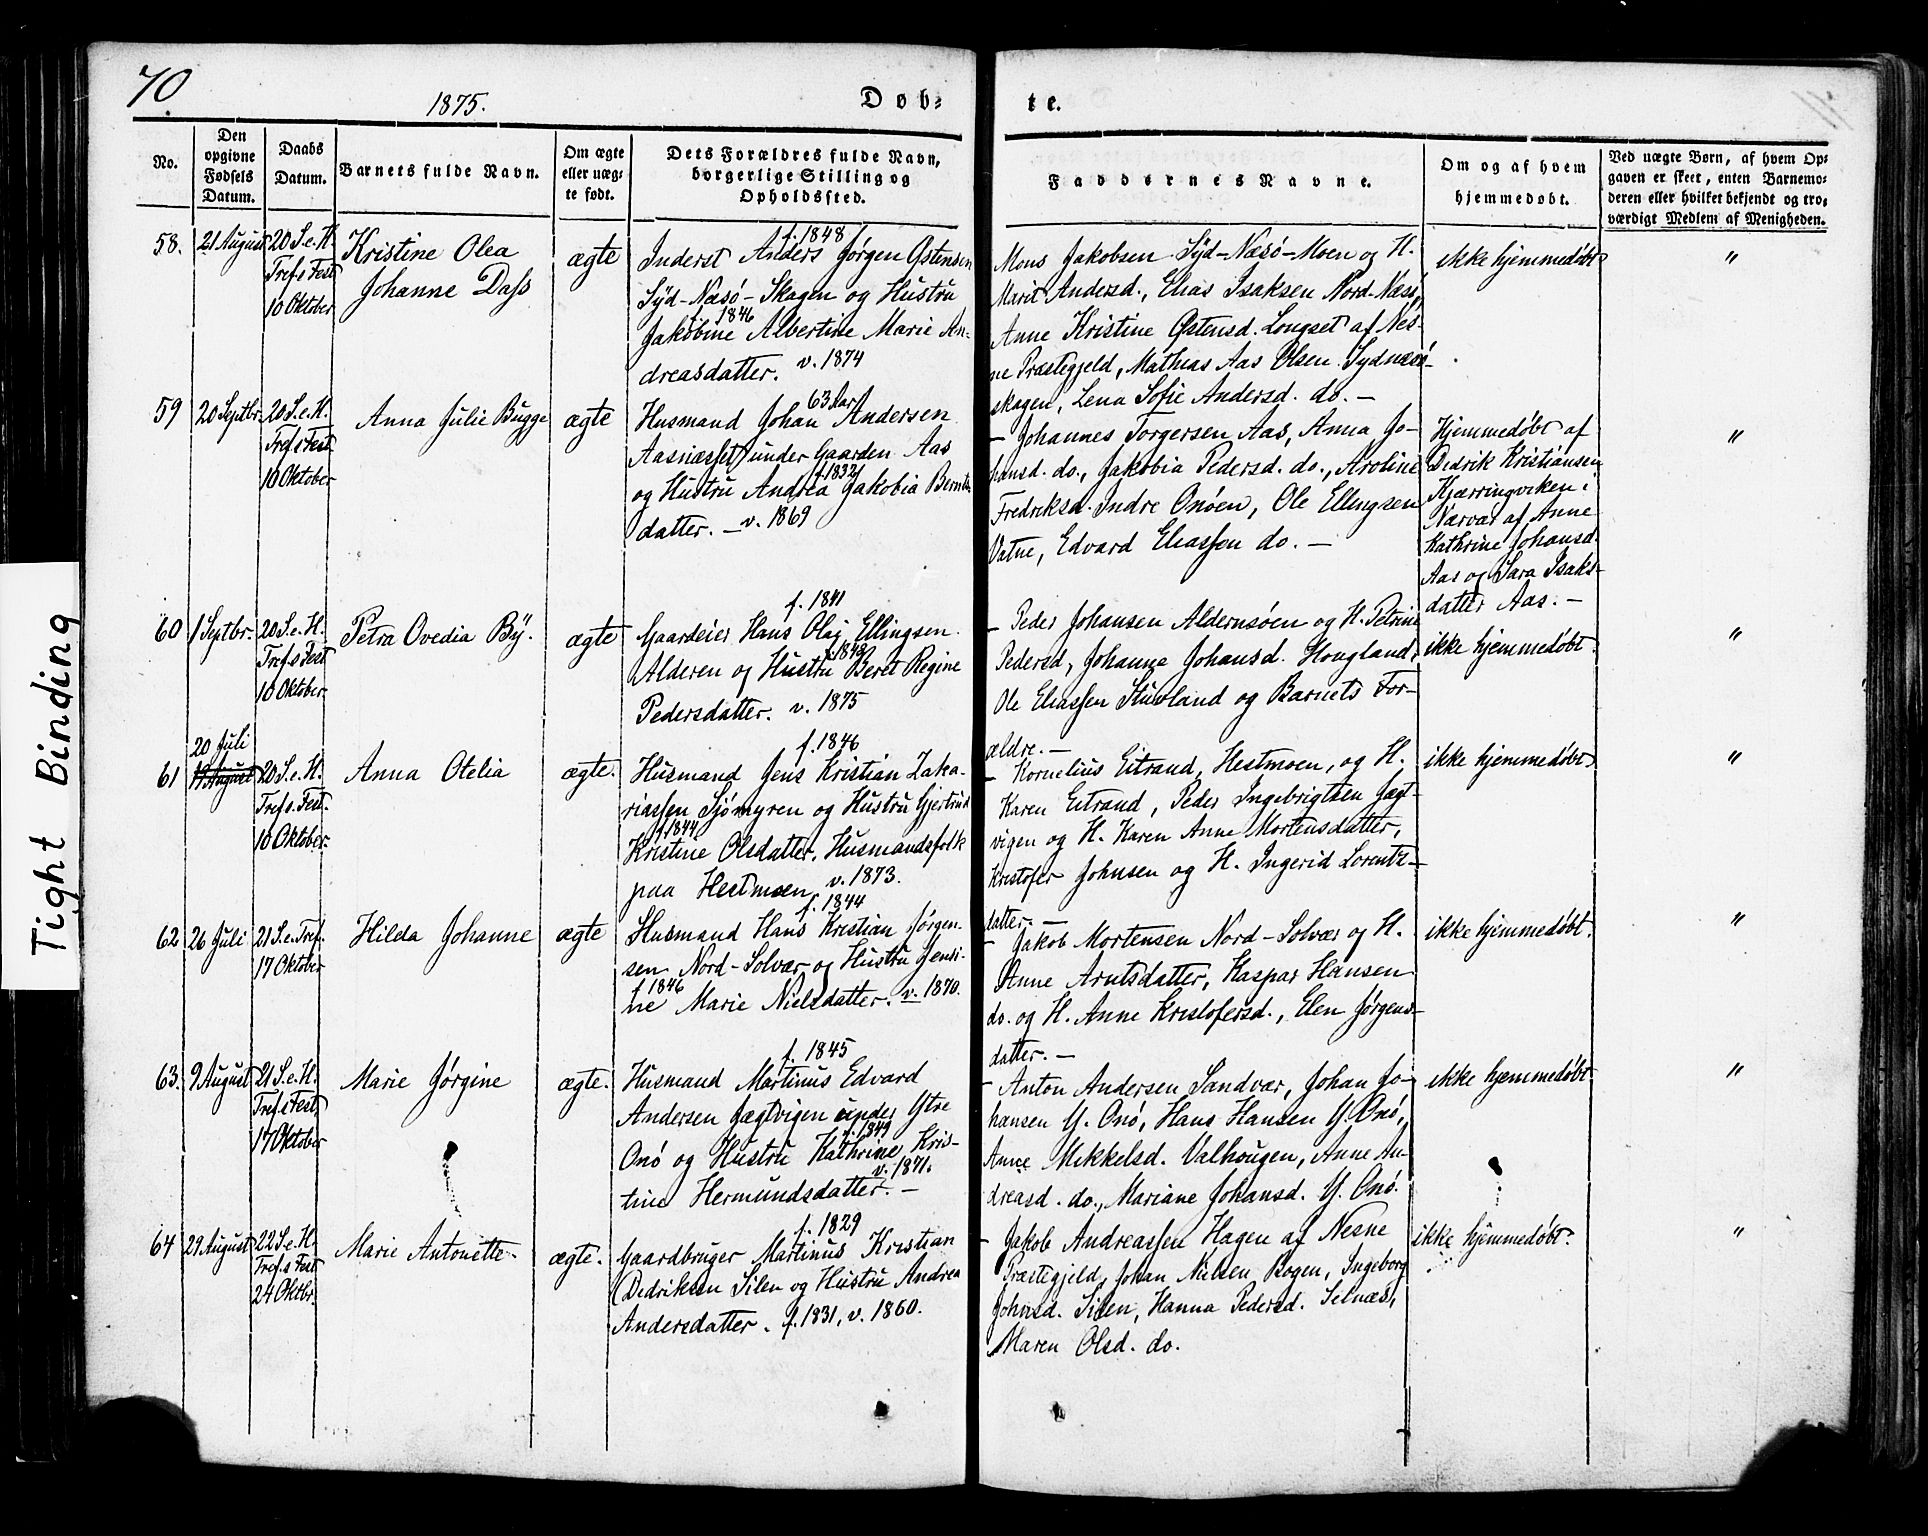 70.
1875.
Døb-
te.
No.
Den opgivne Fødsels Datum.
Daabs Datum.
Barnets fulde Navn.
Om ægte eller uægte født.
Dets Forældres fulde Navn, borgerlige Stilling og Opholdssted.
Faddernes Navne.
Om og af hvem hjemmedøbt.
Ved uægte Børn, af hvem Opgaven er skeet, enten Barnemoderen eller hvilket bekjendt og troværdigt Medlem af Menigheden.
58.
21 August
20 S. e. H.
Tref.s Fest
10 Oktober
Kristine Olea
Johanne Dass
ægte
f. 1848
Inderst Anders Jørgen Østensen
Syd-Næsø-Skagen og Hustru
f. 1846
Jakobine Albertine Marie An-
dreasdatter. v. 1874
Mons Jakobsen Syd-Næsø-Moen og H.
Marit Andersd., Elias Isaksen Nord-Næsø,
Anne Kristine Østensd. Longset af Nes-
ne Præstegjeld, Mathias Aas Olsen Sydnæsø-
skagen, Lena Sofie Andersd. do. —
ikke hjemmedøbt
"
59
20 Septbr.
20 S. e. H.
Tref.s Fest
10 Oktober
Anna Julie Bugge
ægte
63 Aar
Husmand Johan Andersen
Aasnæsset under Gaarden Aas
f. 1832
og Hustru Andrea Jakobia Bernts-
datter. — v. 1869
— Johannes Torgersen Aas, Anna Jo-
hansd. do., Jakobia Pedersd. do., Aroline
Fredriksd. Indre Onøen, Ole Ellingsen
Vatne, Edvard Eliassen do. —
Hjemmedøbt af
Dedrik Kristiansen
Kjærringviken i
Nærvær af Anne
Kathrine Johansd.
Aas og Sara Isaks-
datter Aas. —
"
60
1 Septbr.
20 S. e. H.
Tref.s Fest
10 Oktober
Petra Ovedia By.
ægte
f. 1841
Gaardeier Hans Olaj Ellingsen
f. 1848
Alderen og Hustru Beret Regine
Pedersdatter. v. 1875
— Peder Johansen Aldernsøen og H. Petrine
Pedersd, Johanne Johansd. Hougland,
Ole Eliassen Stuvland og Barnets For-
ældre. —
ikke hjemmedøbt
"
61
20 Juli
19 August
20 S. e. H.
Tref.s. Fest
10 Oktober
Anna Otelia
ægte.
f. 1846
Husmand Jens Kristian Zaka-
riassen Sjømyren og Hustru Gjertrud
f. 1844
Kristine Olsdatter, Husmandsfolk
paa Hestmoen v. 1873.
— Kornelius Eitrand, Hestmoen, og H.
Karen Eitrand, Peder Ingebrigtsen Jægt-
vigen og H. Karen Anne Mortensdatter,
Kristofer Johnsen og H. Ingerid Lorents-
datter. —
ikke hjemmedøbt
"
62
26 Juli
21 S. e. Tref.
17 Oktober
Hilda Johanne
ægte
f. 1844
Husmand Hans Kristian Jørgen-
sen Nord-Solvær og Hustru Jensi-
f 1846
ne Marie Nielsdatter. v. 1870.
— Jakob Mortensen Nord-Solvær og H.
Anne Arntsdatter, Kaspar Hansen
do. og H. Anne Kristofersd., Elen Jørgens-
datter. —
ikke hjemmedøbt.
"
63.
9 August
21 S. e. H.
Tref.s Fest
17 Oktober
Marie Jørgine
ægte.
f. 1845
Husmand Martinus Edvard
Andersen Jægtvigen under Ytre
f. 1849
Onø og Hustru Kathrine Kris-
v. 1871.
tine Hermundsdatter. —
— Anton Andersen Sandvær, Johan Jo-
hansen Y. Onø, Hans Hansen Y. Onø,
Anne Mikkelsd. Valhougen, Anne An-
dreasd. do., Mariane Johansd. Y. Onø.
ikke hjemmedøbt
"
64
29 August
22 S. e. H.
Tref.s Fest
24 Oktbr.
Marie Antonette
ægte.
f. 1829
Gaardbruger Martinus Kristian
Dedriksen Silen og Hustru Andrea
Andersdatter. f. 1831, v. 1860.
— Jakob Andreassen Hagen af Nesne
Præstegjeld, Johan Nielsen Bogen, Ingeborg
Johnsd. Silen, Hanna Pedersd. Selnæs,
Maren Olsd. do.
ikke hjemmedøbt.
"
Tight Binding